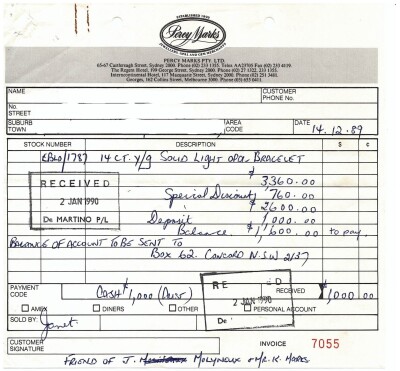 ESTABLISHED 1899
Percy Marks
PERCY MARKS PTY. LTD.
65-67 Castlereagh Street, Sydney 2000. Phone (02) 233 1355. Telex AA
The Regent Hotel, 199 George Street, Sydney 2000. Phone (02) 27 1322, 233 1355.
Intercontinental Hotel, 117 Macquarie Street, Sydney 2000. Phone (02) 251 3481.
Georges, 162 Collins Street, Melbourne 3000. Phone (03)
NAME
CUSTOMER PHONE No.
No.
STREET
SUBURB
TOWN
AREA CODE
DATE 14.12.89
STOCK NUMBER DESCRIPTION $ ¢
1787 14CT. y/g SOLID LIGHT OPAL BRACELET
$ 3360.00
RECEIVED
2 JAN 1990
De MARTINO P/L
Special Discount $ 760.00
$ 2600.00
Deposit 1,000.00
Balance $ 1,600.00 to pay.
BALANCE OF ACCOUNT TO BE SENT TO
BOX 62. CONCORD N.S.W 2137
PAYMENT CODE
CASH $1,000 RECEIVED $ 1,000 00
RE D
2 JAN 1990
De
AMEX DINERS OTHER PERSONAL ACCOUNT
SOLD BY Janet.
INVOICE 7055
CUSTOMER SIGNATURE
FRIEND OF J. MOLYNEUX OR MR. K. MARKS